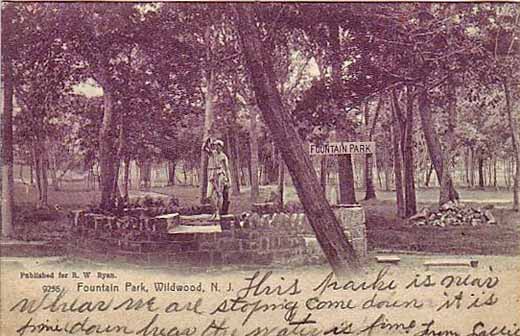 FOUNTAIN PARK
Published for R. W. Ryan.
9256 Fountain Park, Wildwood, N. J. This parke is near
Whear we are stoping come down it is
fine down hear the water is fine